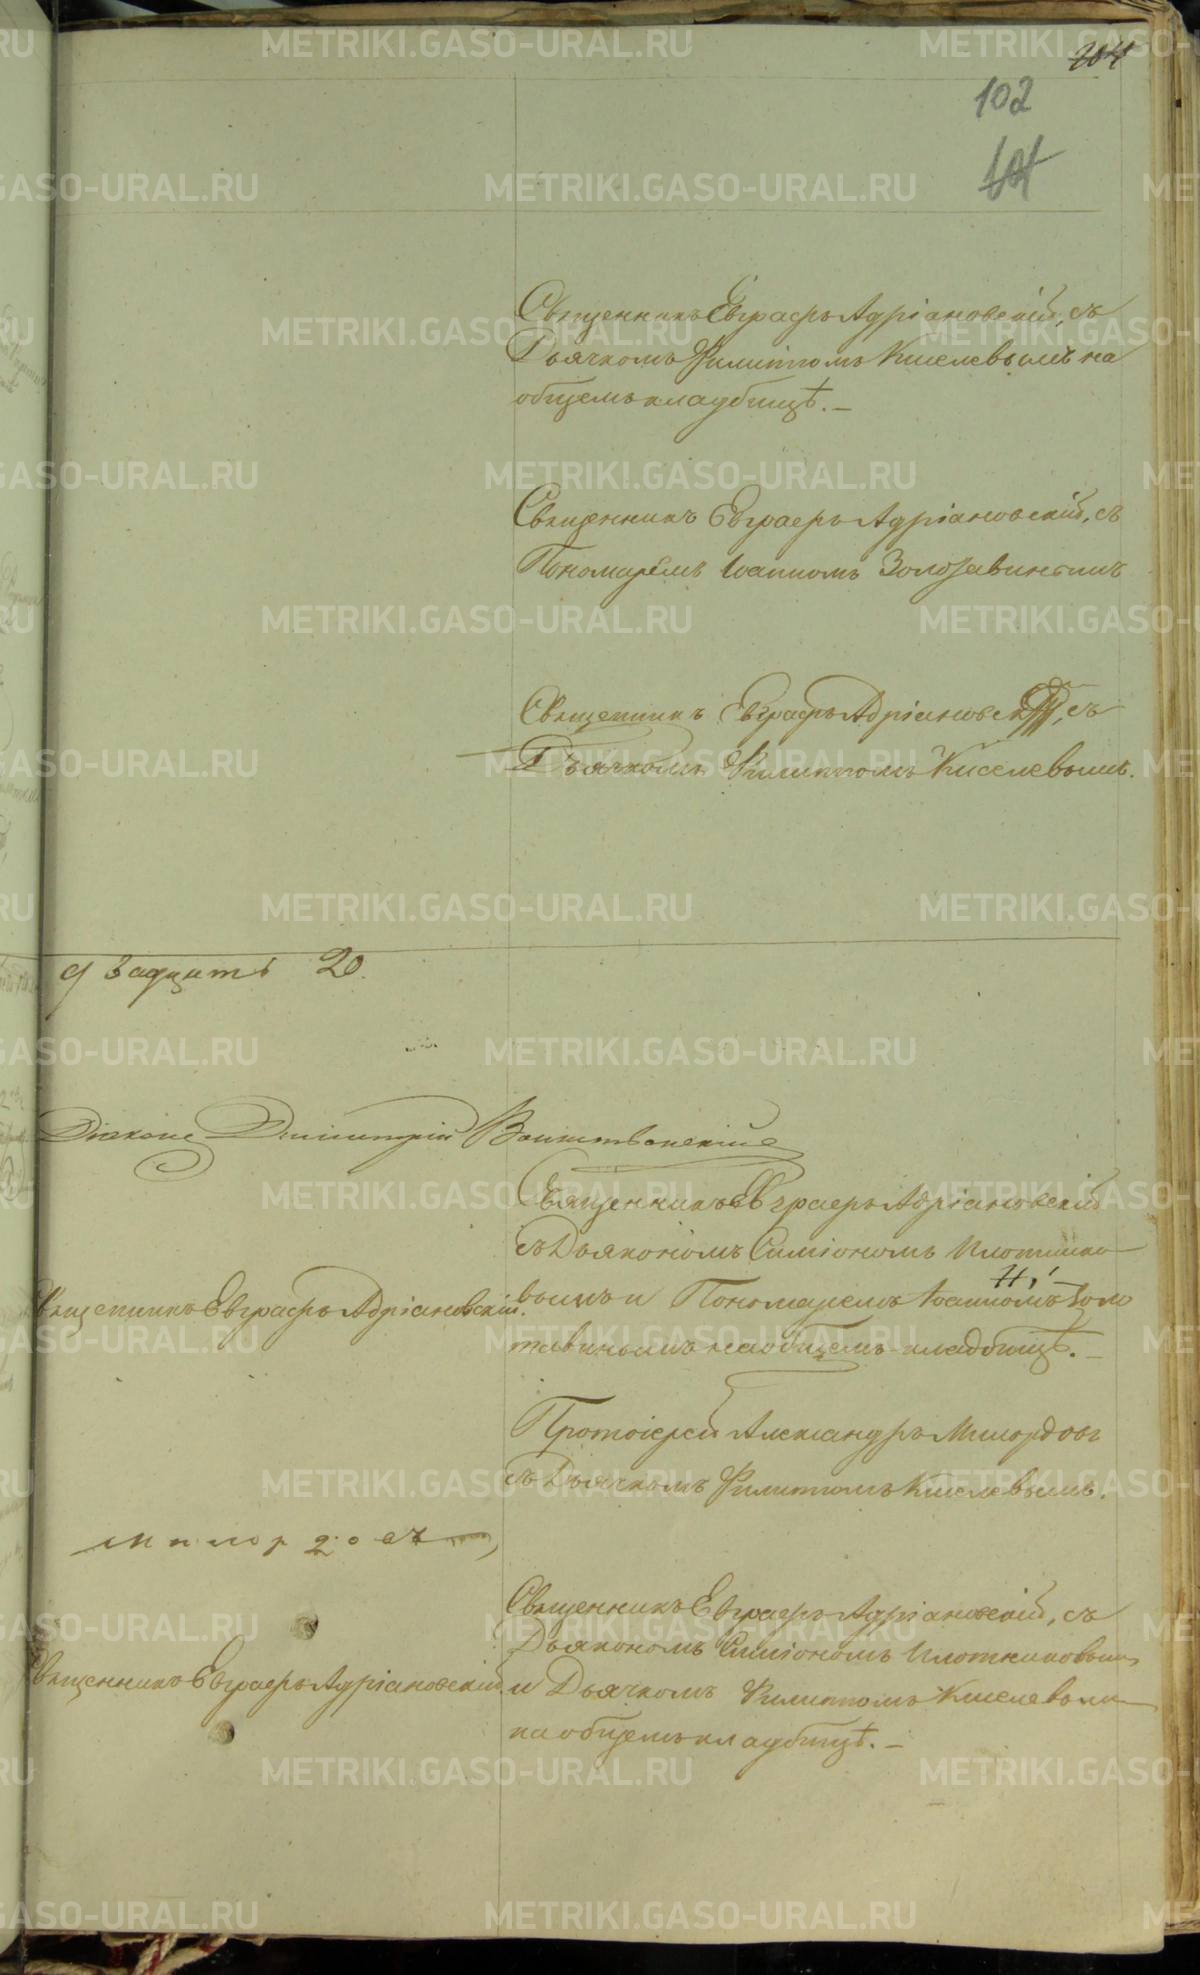 204
102
101
Священникъ Евграфъ Адріановскій, съ
Дьячкомъ Филиппомъ Киселевымъ на
общемъ кладбищѣ.—
Священникъ Евграфъ Адріановскій, съ
Пономаремъ Іоанномъ Золотавинымъ
Священникъ Евграфъ Адріановскій, съ
Дьячкомъ Филиппомъ Киселевымъ.
Двадцать 20.
Діаконъ Димитрій
Священникъ Евграфъ Адріановскій
съ Дьякономъ Симіономъ Плотнико
вымъ и Пономаремъ Іоанномъ Золо
Священникъ Евграфъ Адріановскій.
тавинымъ на общемъ кладбищѣ.—
Протоіерей Александръ Милордовъ
съ Дьячкомъ Филиппомъ Киселевымъ.
Священникъ Евграфъ Адріановскій, съ
Дьякономъ Симіономъ Плотниковымъ
Священникъ Евграфъ Адріановскій
и Дьячкомъ Филиппомъ Киселевымъ
на общемъ кладбищѣ.—
METRIKI.GASO-URAL.RU